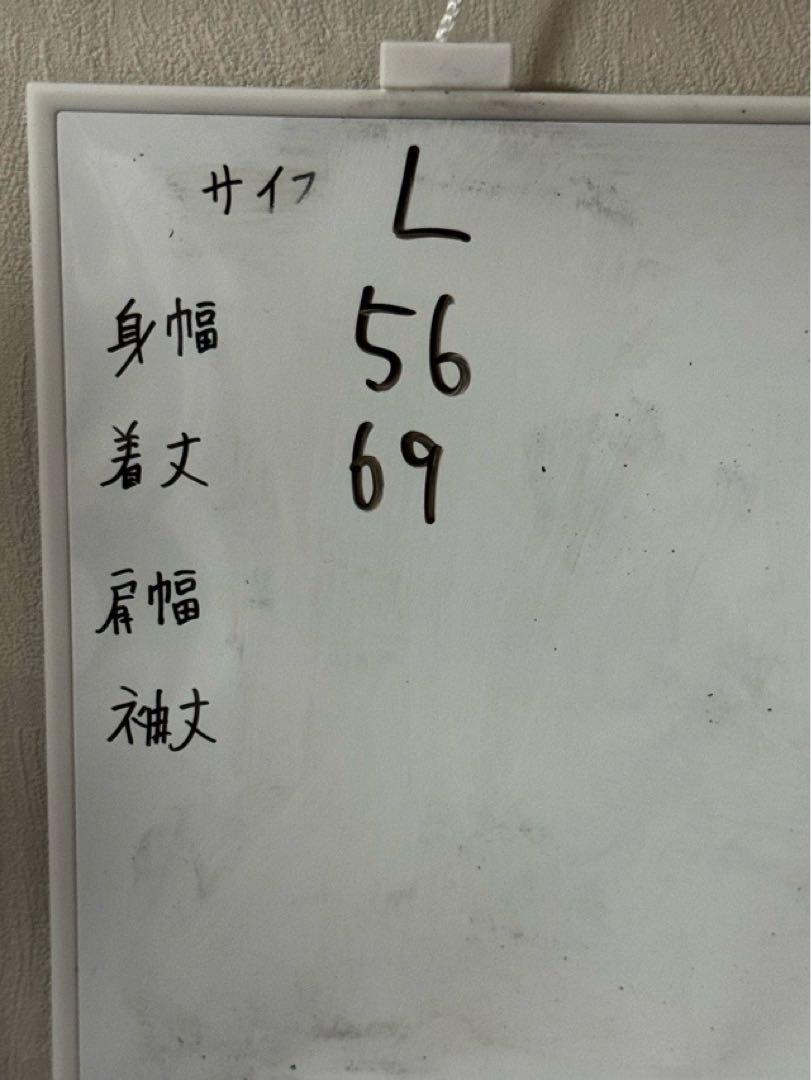 サイフ L
身幅 56
着丈 69
肩幅
袖丈